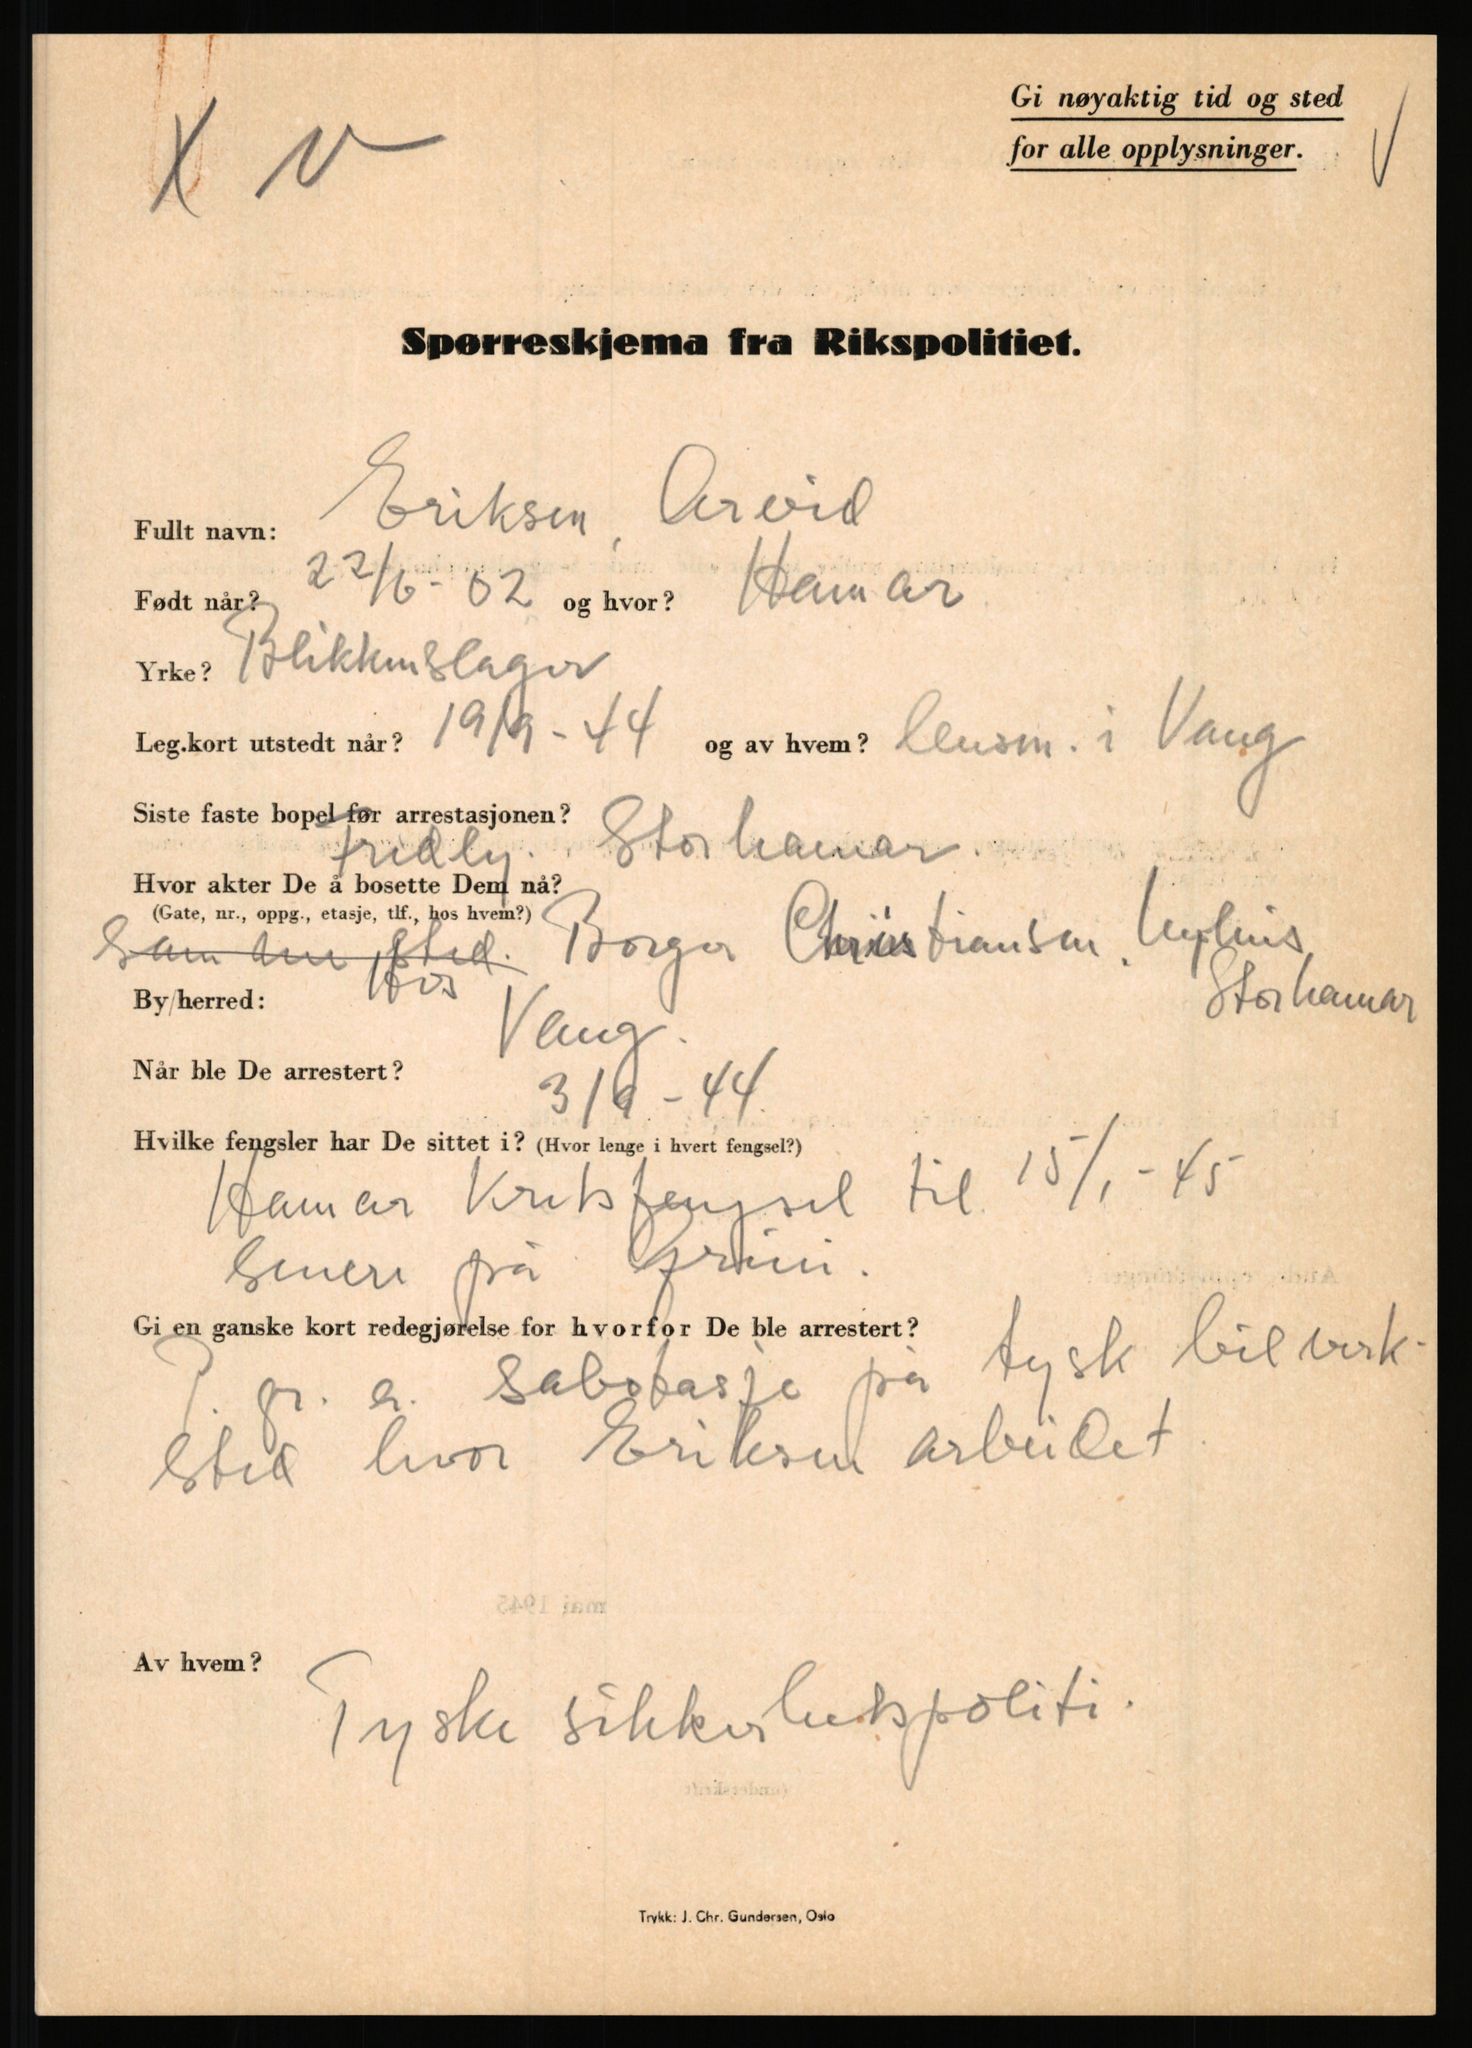 X V
Gi nøyaktig tid og sted
for alle opplysninger.
Spørreskjema fra Rikspolitiet.
Fullt navn: Eriksen, Arvid
Født når? 22/6-02 og hvor? Hamar
Yrke? Blikkenslager
Leg.kort utstedt når? 19/9-44 og av hvem? lensm. i Vang
Siste faste bopel før arrestasjonen?
Fredly. Storhamar.
Hvor akter De å bosette Dem nå?
(Gate, nr., oppg., etasje, tlf., hos hvem?)
Samme sted. Hos Borger Christiansen,
Storhamar
By/herred: Vang.
Når ble De arrestert? 3/9-44.
Hvilke fengsler har De sittet i? (Hvor lenge i hvert fengsel?)
Hamar Kretsfengsel til 15/1-45
senere på Grini.
Gi en ganske kort redegjørelse for hvorfor De ble arrestert?
P. gr. a. sabotasje på tysk bilverk-
sted hvor Eriksen arbeidet
Av hvem? Tyske sikkerhetspoliti.
Trykk: J. Chr. Gundersen, Oslo